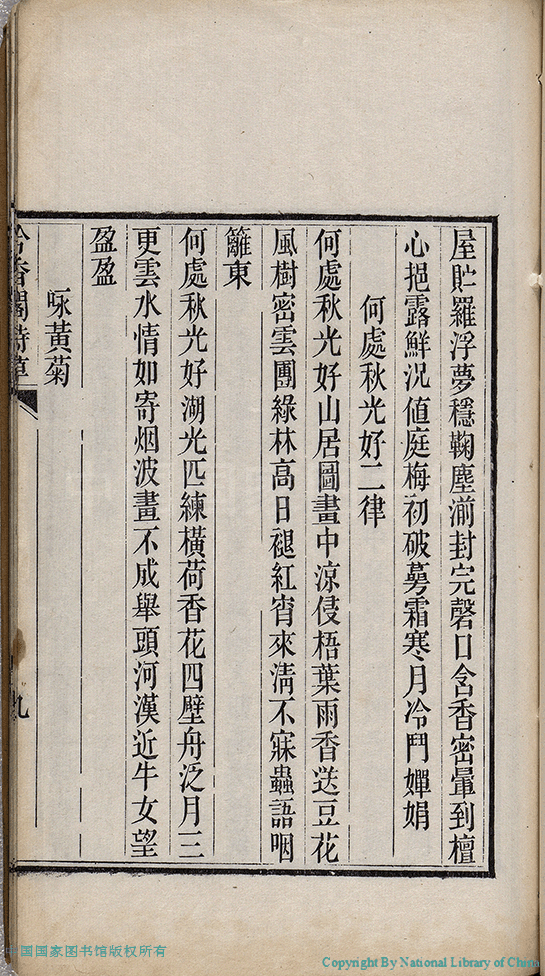 屋貯羅浮夢穩鞠塵湔封完磬口含香密暈到檀
心挹露鮮況値庭梅初破萼霜寒月冷鬥嬋娟
何處秋光好二律
何處秋光好山居圖畫中涼侵梧葉雨香送豆花
風樹密雲團綠林高日褪紅宵來淸不寐蟲語咽
籬東
何處秋光好湖光匹練橫荷香花四壁舟泛月三
更雲水情如寄烟波畫不成舉頭河漢近牛女望
盈盈
咏黃菊
香閣詩草
九
中国国家图书馆版权所有
Copyright By National Library of China